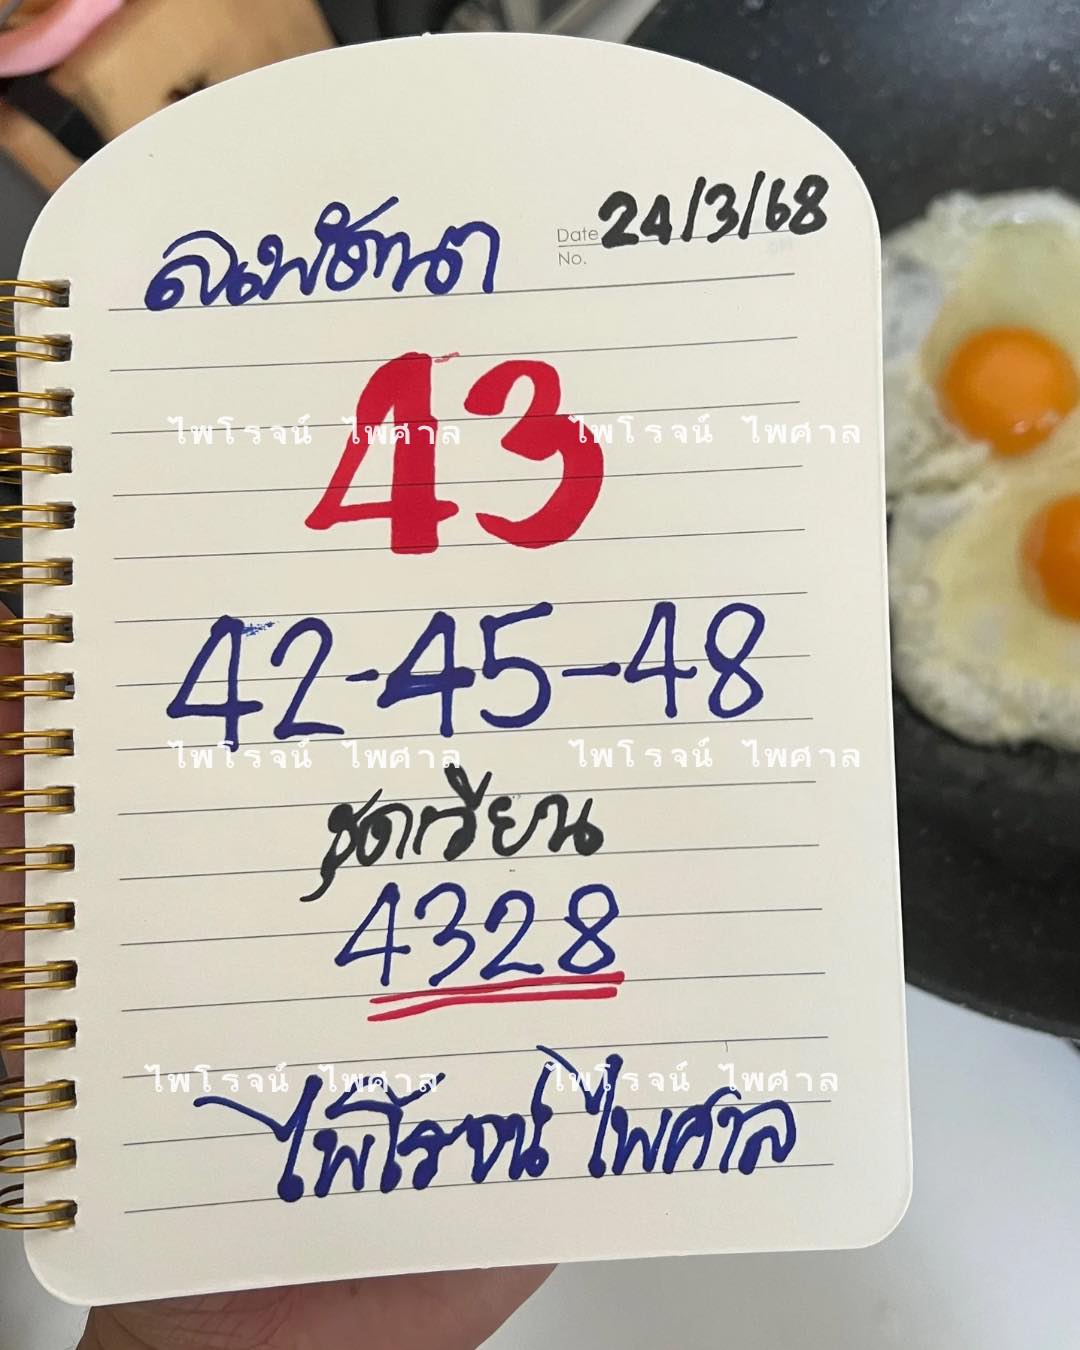 ลาวพัฒนา
Date 24/3/68
No.
43
ไพโรจน์ ไพศาล ไพโรจน์ ไพศาล
42-45-48
ไพโรจน์ ไพศาล ไพโรจน์ ไพศาล
ชุดเวียน
4328
ไพโรจน์ ไพศาล ไพโรจน์ ไพศาล
ไพโรจน์ ไพศาล